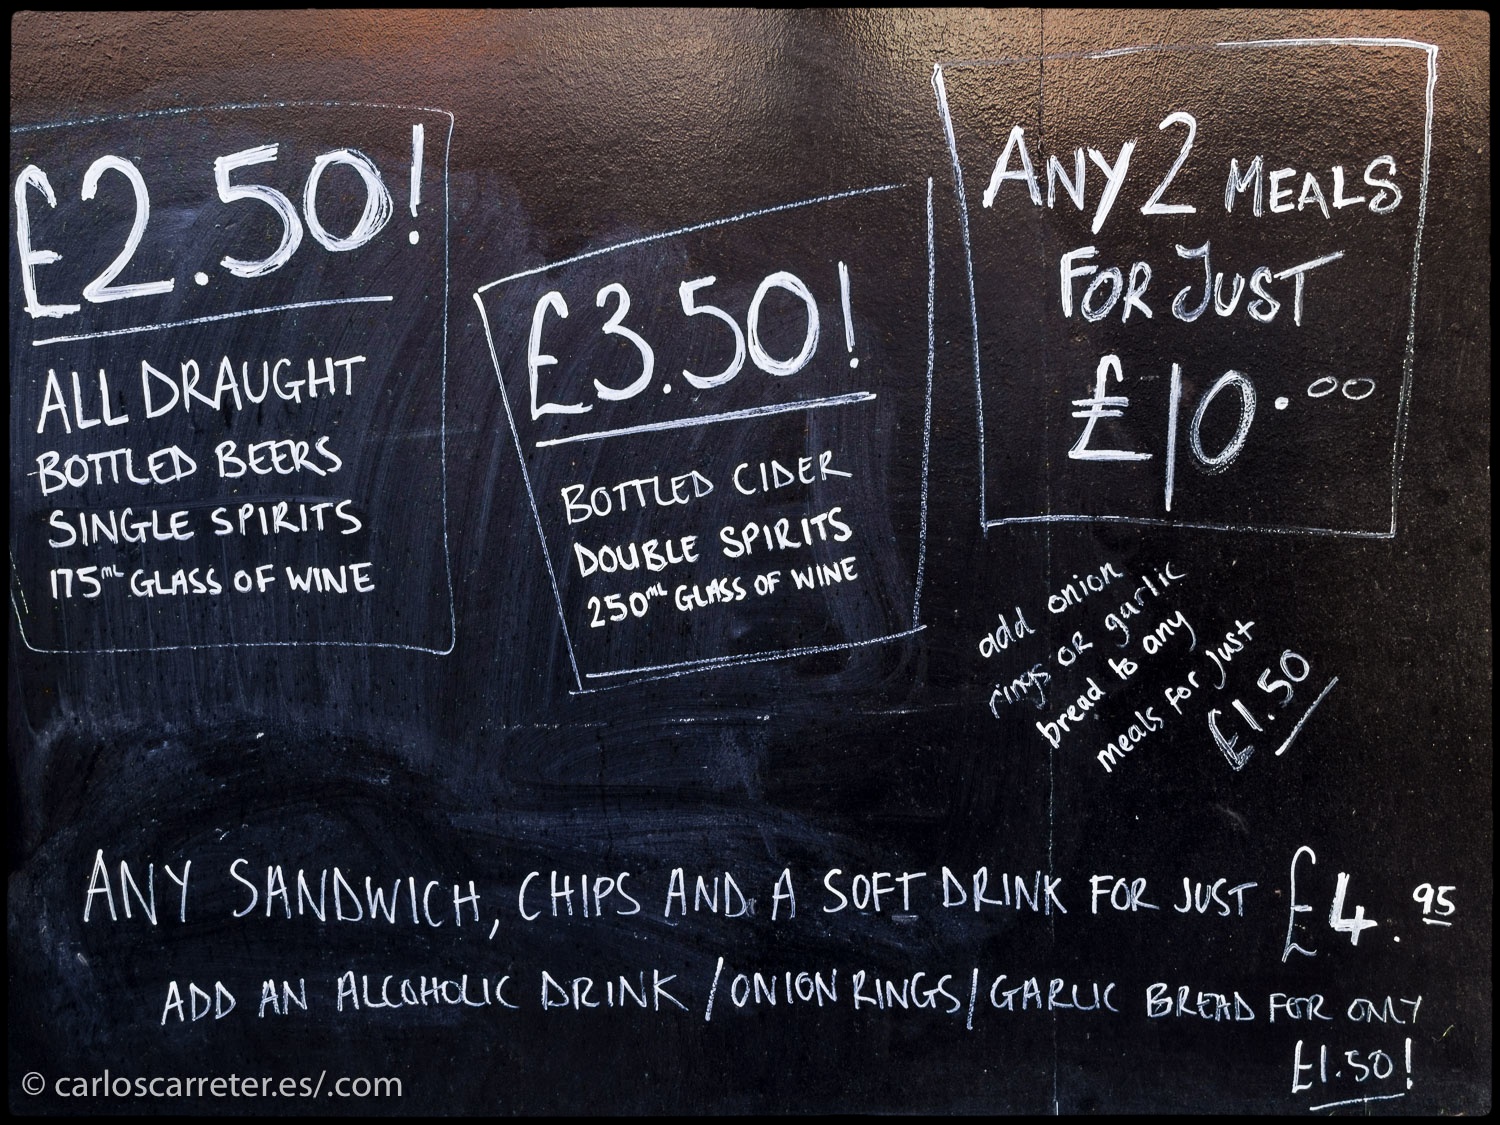 £2.50!
ALL DRAUGHT
BOTTLED BEERS
SINGLE SPIRITS
175ML GLASS OF WINE
£3.50!
BOTTLED CIDER
DOUBLE SPIRITS
250ML GLASS OF WINE
ANY 2 MEALS
FOR JUST
£10.00
add onion
rings or garlic
bread to any
meals for just
£1.50
ANY SANDWICH, CHIPS AND A SOFT DRINK FOR JUST £4.95
ADD AN ALCOHOLIC DRINK /ONION RINGS/GARLIC BREAD FOR ONLY
£1.50!
© carloscarreter.es/.com